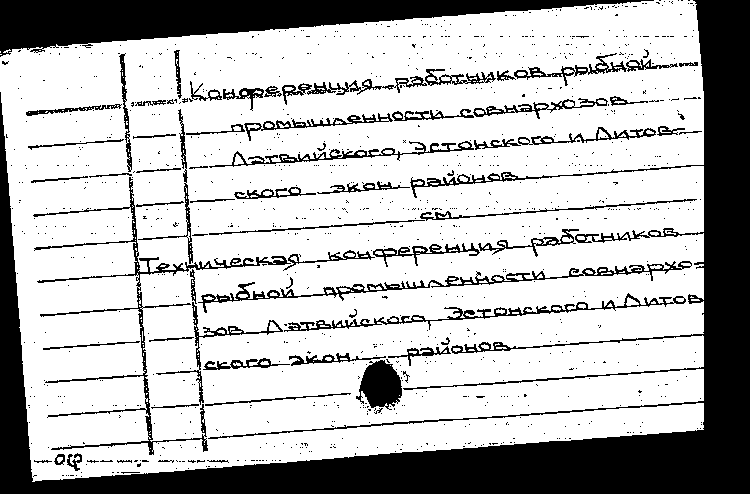 Конференция работников рыбной
промышленности совнархозов
Латвийского, Эстонского и Литов-
ского экон. районов
см.
Техническая конференция работников
рыбной промышленности совнархо-
зов Латвийского, Эстонского и Литов
ского экон. районов